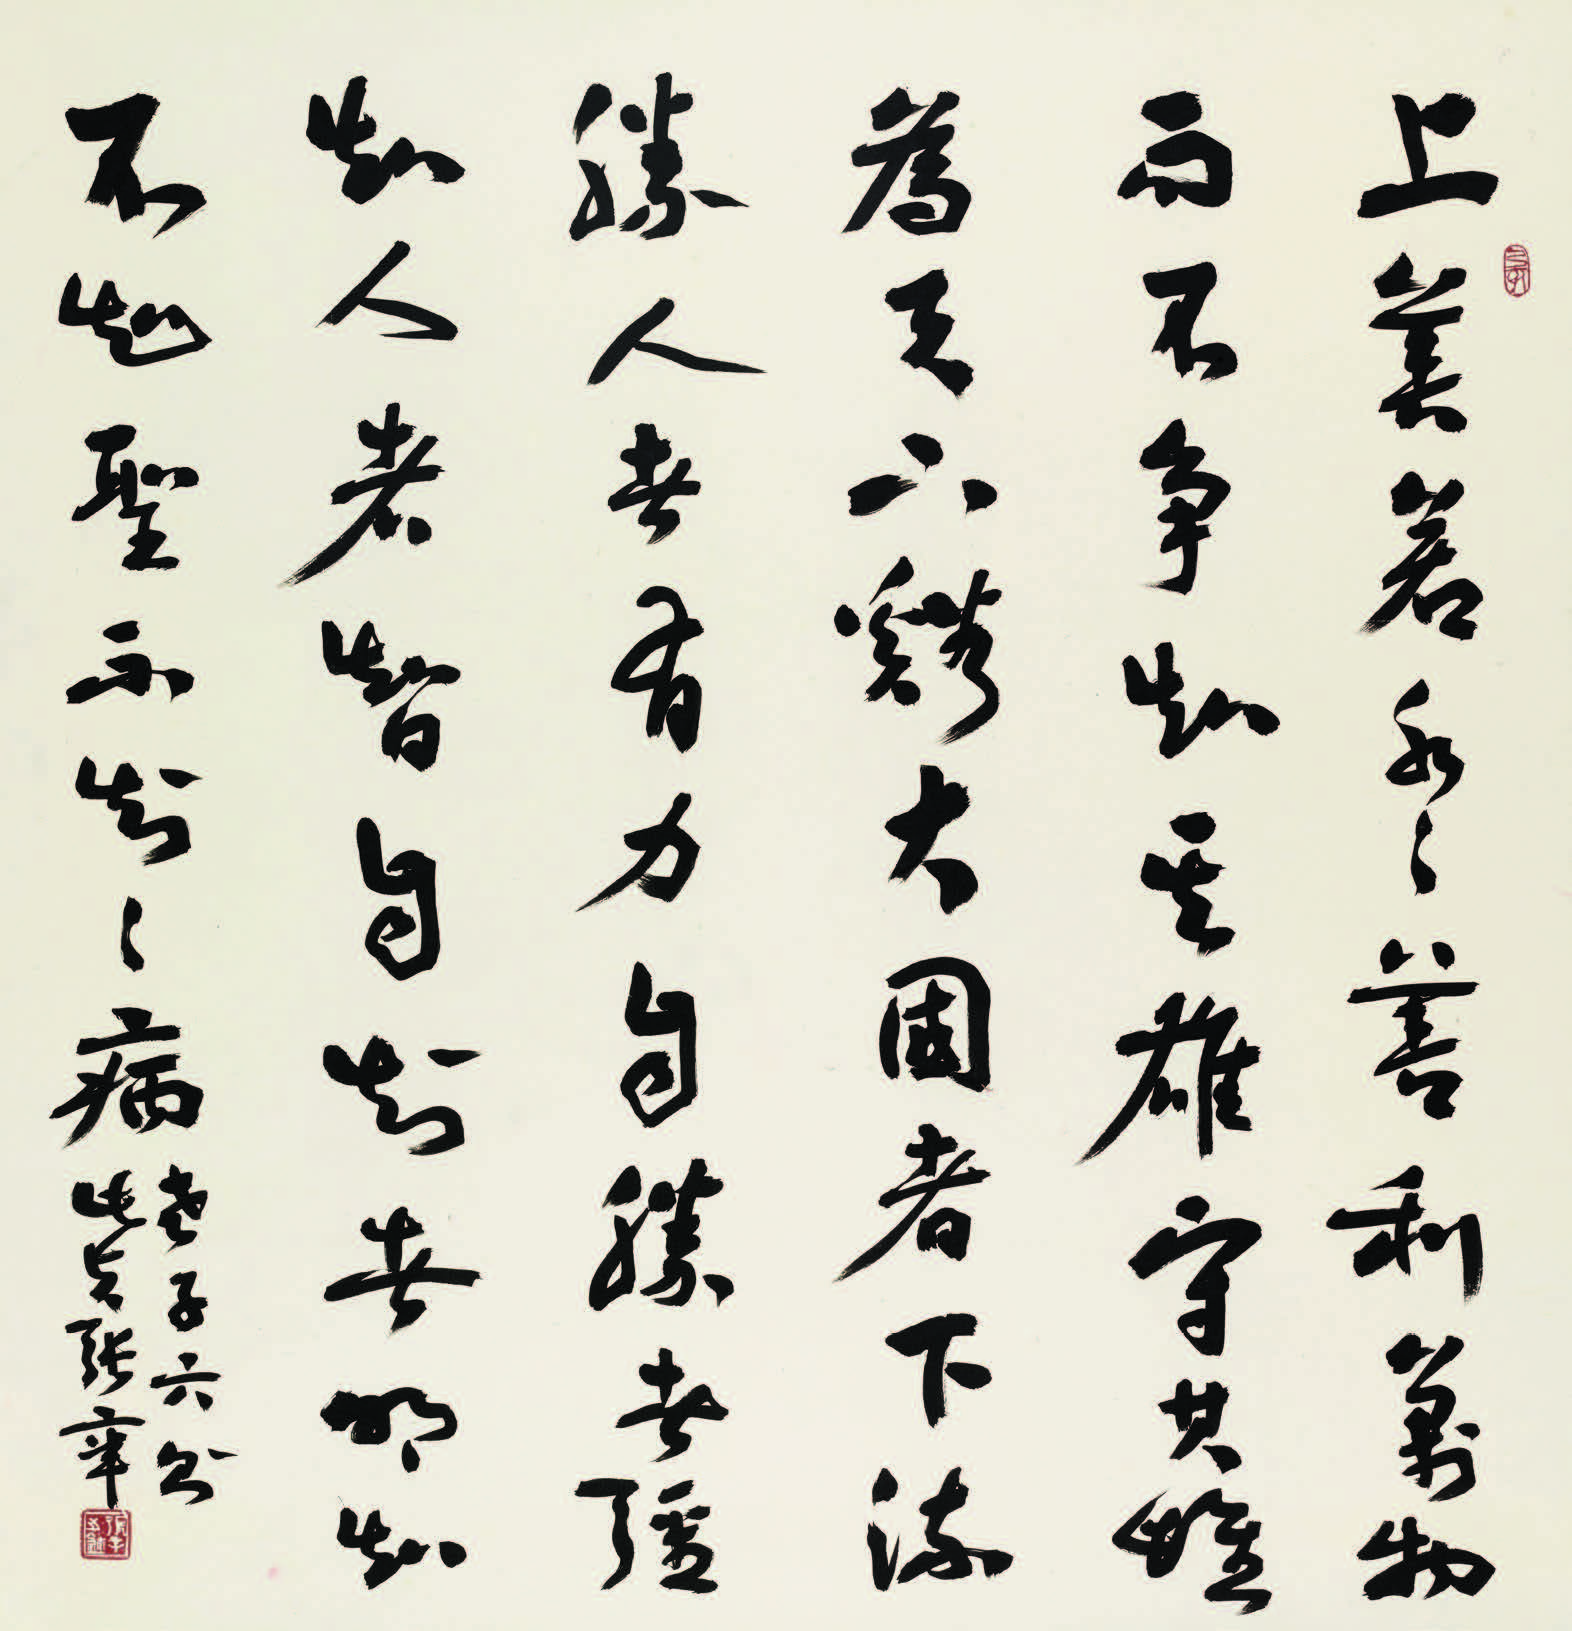 上善若水〻善利萬物
而不争知其雄守其雌
為天下谿大國者下流
勝人者有力自勝者彊
知人者智自知者明知
不知聖不知〻病
老子六
張